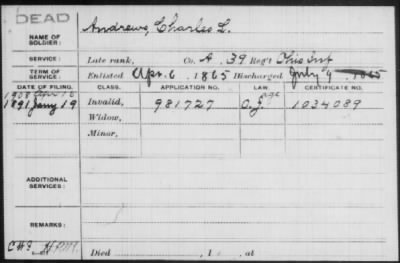 DEAD
NAME OF SOLDIER: Andrews, Charles L.
SERVICE: Late rank, Co. A, 39 Reg't Ohio Inf
TERM OF SERVICE: Enlisted Apr. 6, 1865 Discharged July 9, 1865
DATE OF FILING. CLASS. APPLICATION NO. LAW. CERTIFICATE NO.
1908
1891 Jany 19 Invalid, 981727 age 1034089
Widow,
Minor,
ADDITIONAL SERVICES:
REMARKS:
Died , 1 , at